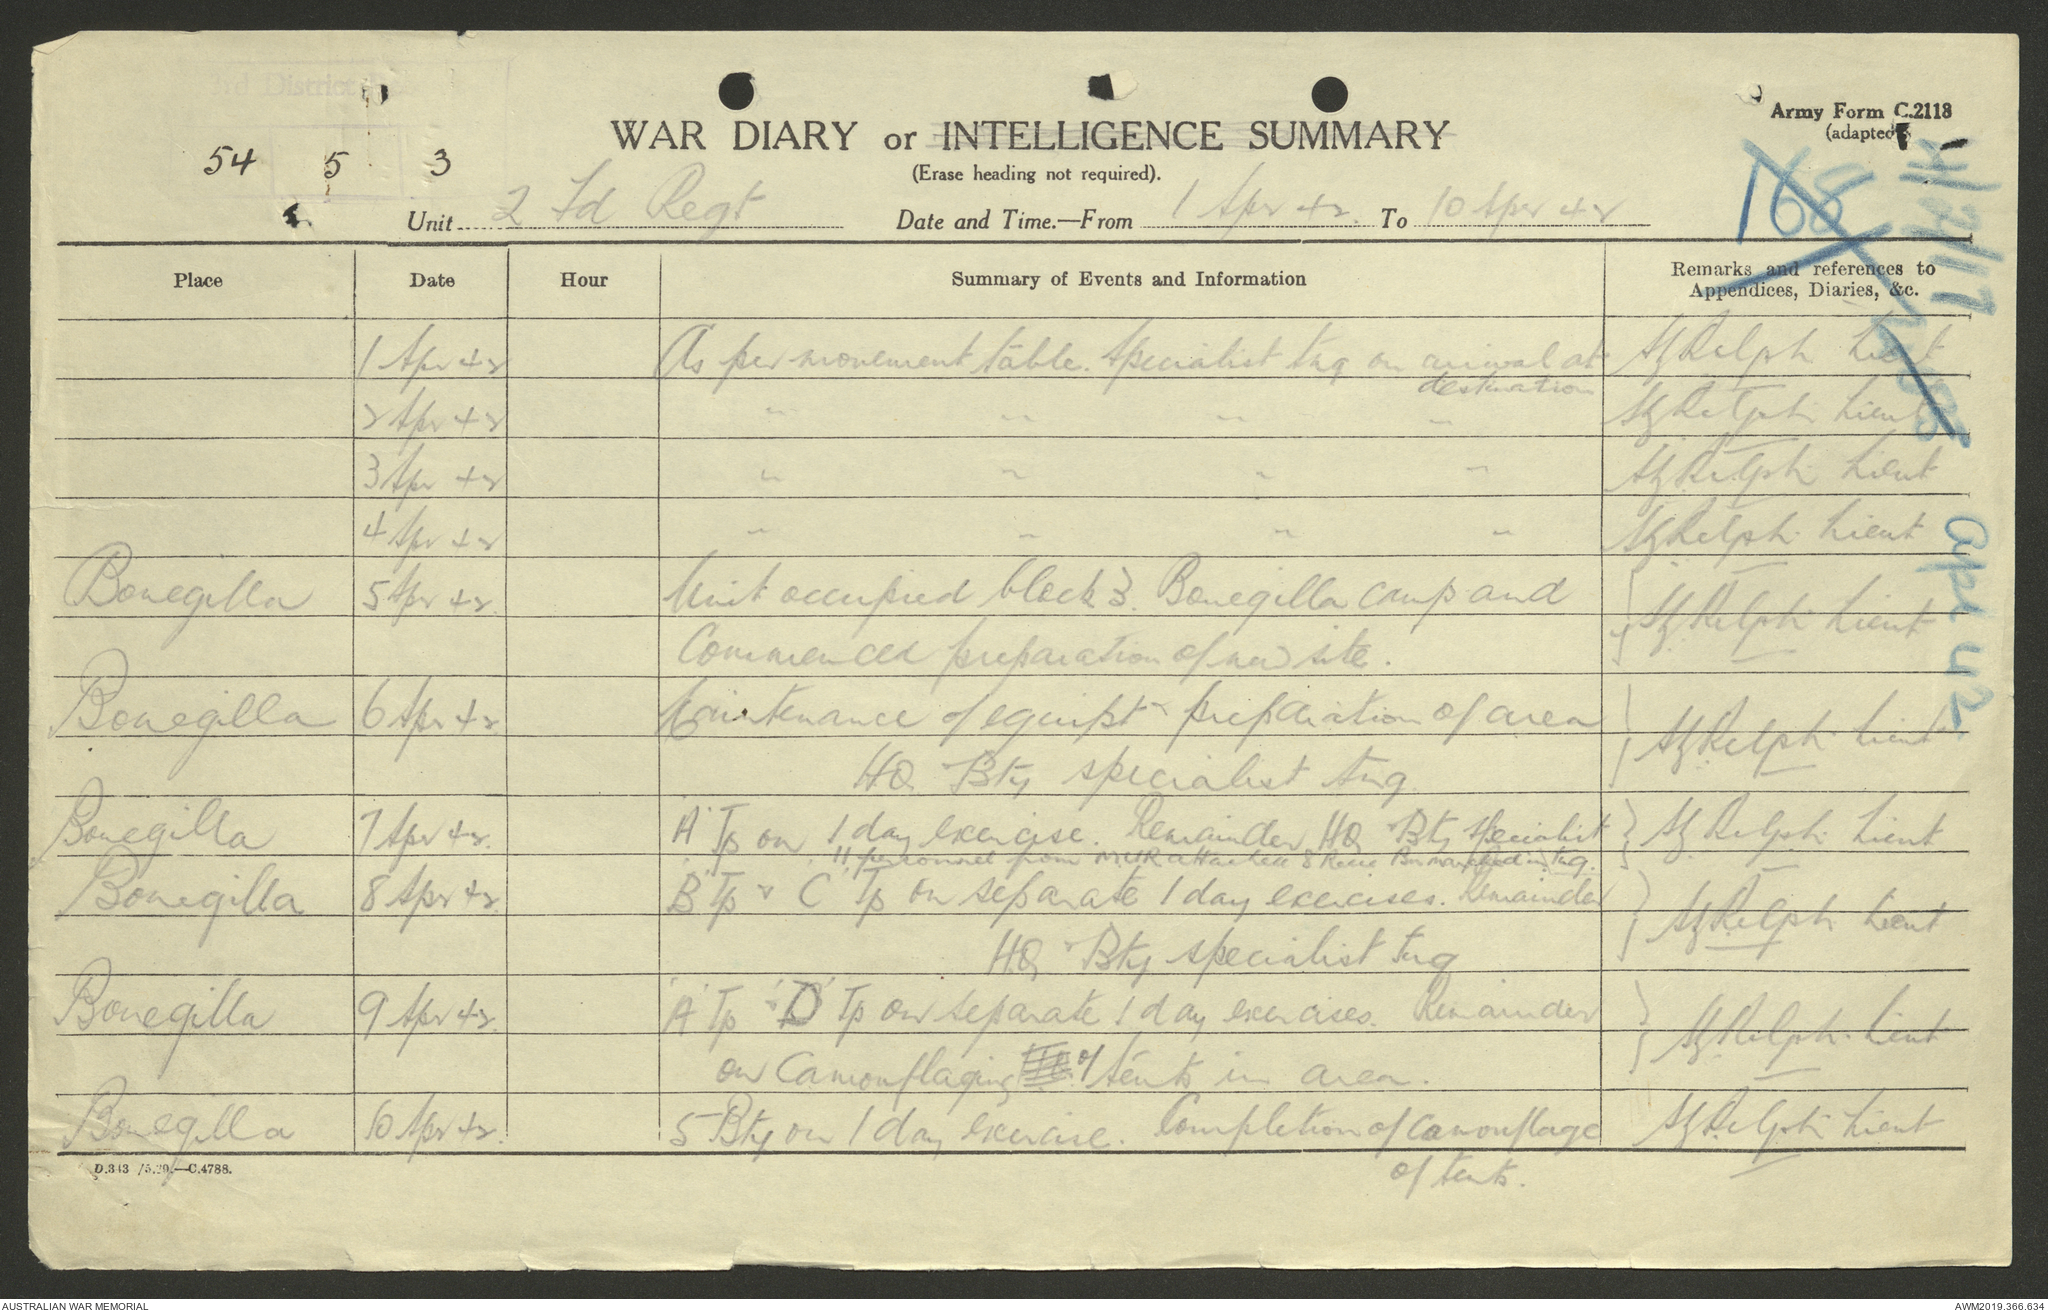 3rd District
Army Form C.2118
(adapted)
WAR DIARY or INTELLIGENCE SUMMARY
(Erase heading not required).
54 5 3
168
Unit 2 Fd Regt Date and Time.—From 1 Apr 42. To 10 Apr 42
Place Date Hour Summary of Events and Information Remarks and references to Appendices, Diaries, &c.
1 Apr 42 As per movement table. Specialist tng on arrival at destination Relph Lieut
2 Apr 42 " " " " Relph Lieut
3 Apr 42 " " " " Relph Lieut
4 Apr 42 " " " " Relph Lieut
Bonegilla 5 Apr 42. Unit occupied block 3. Bonegilla camp and Relph Lieut
Commenced preparation of new site.
Bonegilla 6 Apr 42. Maintenance of equipt & preparation of area Relph Lieut
HQ Bty specialist tng
Bonegilla 7 Apr 42. 'A' Tp on 1 day exercise. Remainder HQ Bty specialist tng. Relph Lieut
11 personnel from attached 8 Recce Bn marched in
Bonegilla 8 Apr 42. 'B' Tp & 'C' Tp on separate 1 day exercises. Remainder Relph Lieut
HQ Bty specialist tng
Bonegilla 9 Apr 42. 'A' Tp & 'D' Tp on separate 1 day exercises. Remainder Relph Lieut
on Camouflaging of tents in area.
Bonegilla 10 Apr 42. 5 Bty on 1 day exercise. Completion of camouflage Relph Lieut
of tents.
D.343 /5.39.—C.4788.
Apl 42
AUSTRALIAN WAR MEMORIAL
AWM2019.366.634